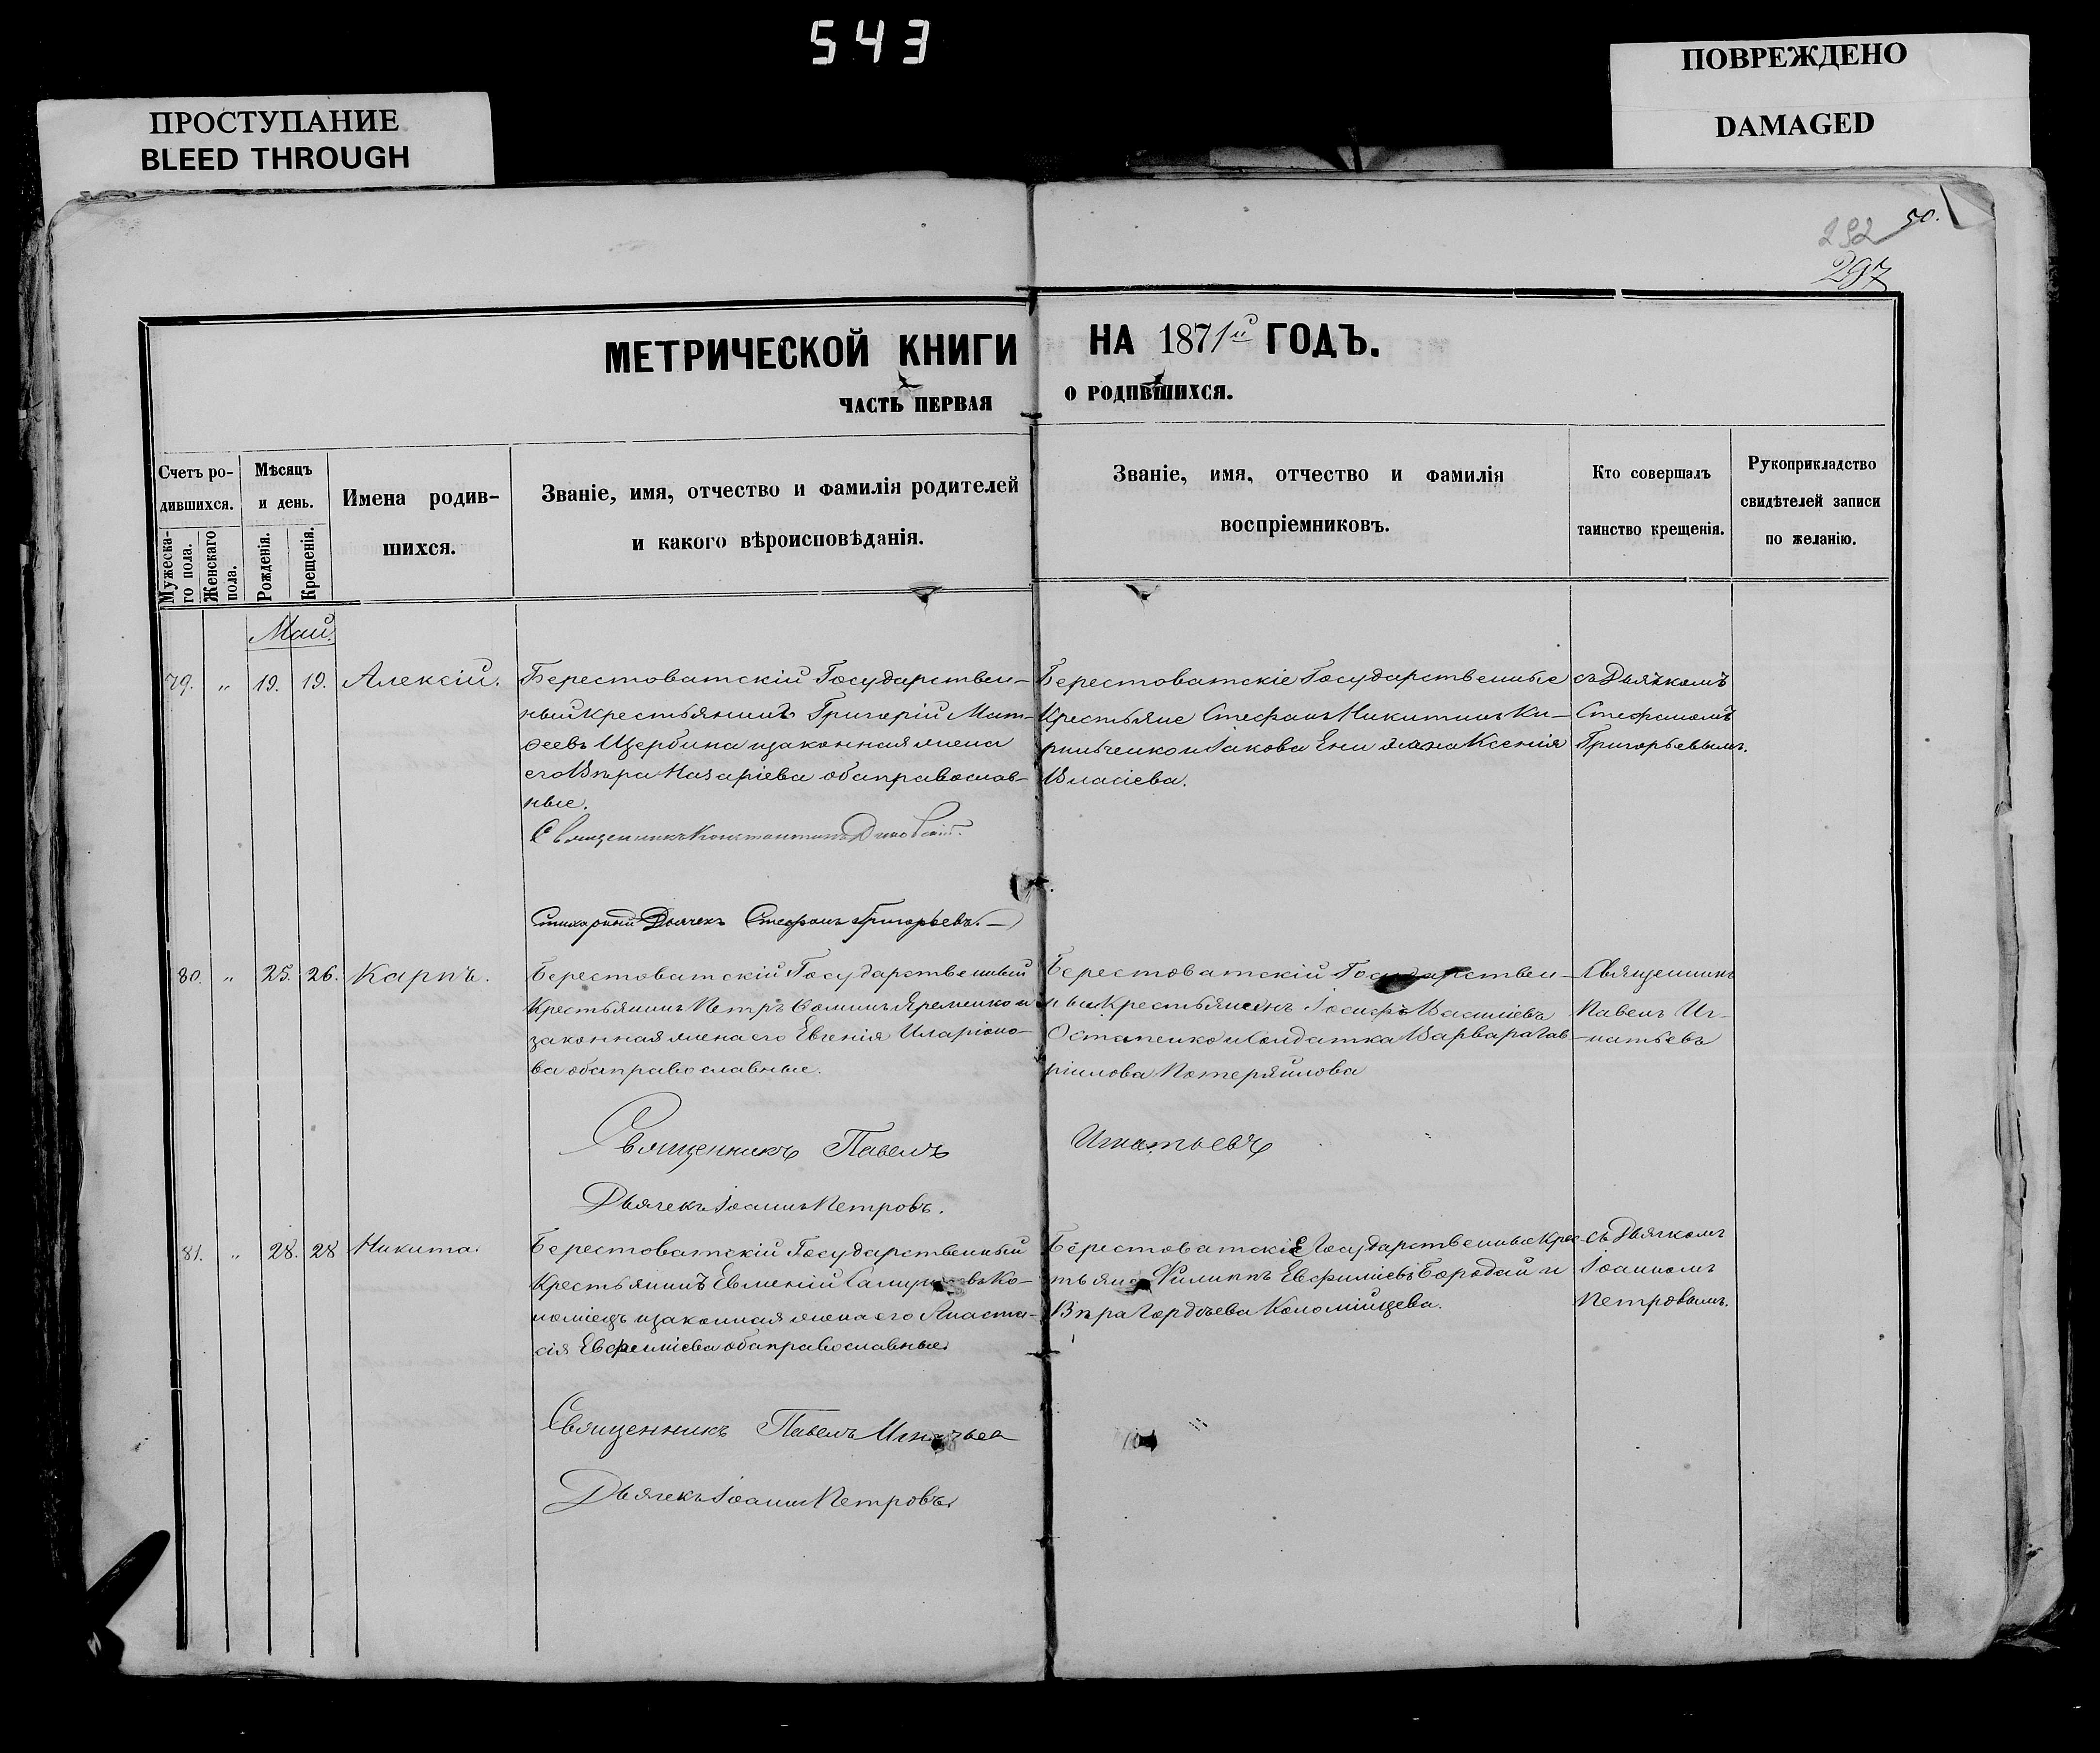 543
ПРОСТУПАНИЕ
BLEED THROUGH
ПОВРЕЖДЕНО
DAMAGED
292 50.
297
МЕТРИЧЕСКОЙ КНИГИ НА 1871й ГОДЪ.
ЧАСТЬ ПЕРВАЯ О РОДИВШИХСЯ.
Счетъ ро-
дившихся.
Мужеска-
го пола.
Женскаго
пола.
Мѣсяцъ
и день.
Рожденія.
Крещенія.
Имена родив-
шихся.
Званіе, имя, отчество и фамилія родителей
и какого вѣроисповѣданія.
Званіе, имя, отчество и фамилія
воспріемниковъ.
Кто совершалъ
таинство крещенія.
Рукоприкладство
свидѣтелей записи
по желанію.
Май.
79. " 19. 19. Алексій.
Берестоватскій Государствен-
ный крестьянинъ Григорій Мат-
ѳеевъ Щербина и законная жена
его Вѣра Назаріева оба православ-
ные.
Священникъ Константинъ
Стихарный Дьячекъ Стефанъ Григорьевъ.
Берестоватскіе Государственные
Крестьяне Стефанъ Никитинъ Ки-
риченко и Іакова жена Ксенія
Власіева.
съ Дьячкомъ
Стефаномъ
Григорьевымъ.
80. " 25. 26. Карпъ.
Берестоватскій Государственный
Крестьянинъ Петръ Ѳоминъ Яременко и
законная жена его Евгенія Иларіоно-
ва оба православные.
Берестоватскій Государствен-
ный Крестьянинъ Іосифъ Василіевъ
Остапенко и Солдатка Варвара Гав-
ріилова Потеряйлова
Священникъ
Павелъ Иг-
натьевъ
Священникъ Павелъ Игнатьевъ
Дьячекъ Іоаннъ Петровъ.
81. " 28. 28 Никита.
Берестоватскій Государственный
Крестьянинъ Евменій Ко-
ломіецъ и законная жена его Анаста-
сія Евфиміева оба православные.
Берестоватскіе Государственные Крес-
тьяне Филиппъ Евфиміевъ Бородай и
Вѣра Гордѣева Коломійцева.
съ Дьячкомъ
Іоанномъ
Петровымъ.
Священникъ Павелъ Игнатьев
Дьячекъ Іоаннъ Петровъ.